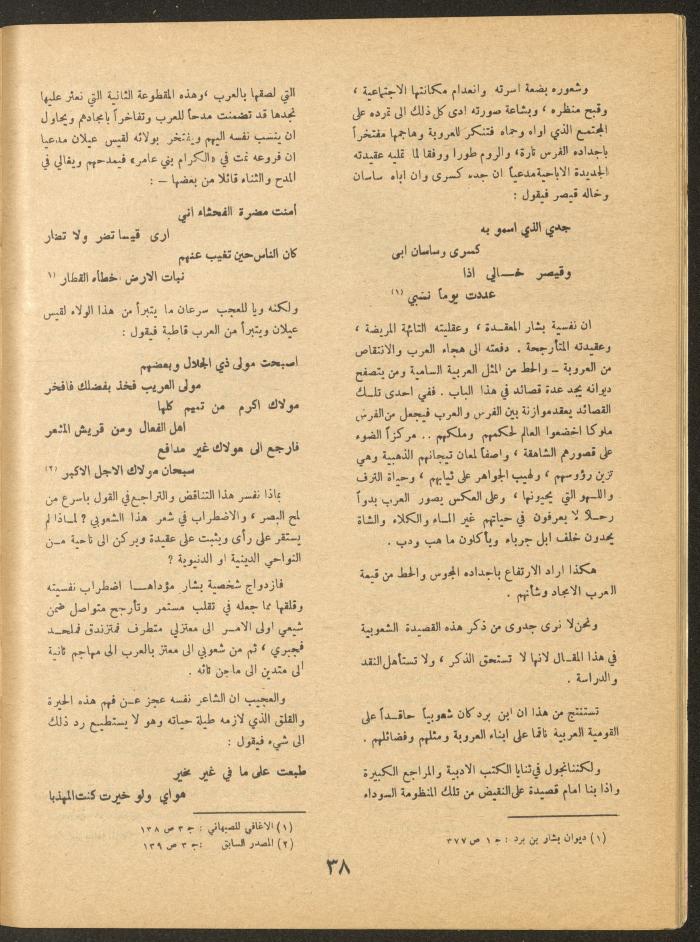 وشعوره بضعة اسرته وانعدام مكانتها الاجتماعية ،
وقبح منظره ، وبشاعة صورته ادى كل ذلك الى تمرده على
المجتمع الذي اواه وحماه فتنكر للعروبة وهاجمها مفتخراً
باجداده الفرس تارة، والروم طورا ورفقا لما تمليه عقيدته
الجديدة الاباحية مدعياً ان جده كسرى وان اباه ساسان
وخاله قيصر فيقول :
جدي الذي اسمو به
كسرى وساسان ابى
وقيصر خــالي اذا
عددت يوماً نسبي (١)
ان نفسية بشار المعقـدة ، وعقليته التائهة المريضة ،
وعقيدته المتأرجحة . دفعته الى هجاء العرب والانتقاص
من العروبة ــ والحط من المثل العربية السامية ومن يتصفح
ديوانه يجد عدة قصائد في هذا الباب . ففي احدى تلــك
القصائد يعقد موازنة بين الفرس والعرب فيجعل من الفرس
ملوكا اخضعوا العالم لحكمهم وملكهم .. مركزاً الضوء
على قصورهم الشاهقة ، واصفاً لمعان تيجانهم الذهبية وهي
تزين رؤوسهم ، ولهيب الجواهر على ثيابهم ، وحياة الترف
واللــهو التي يحيونها ، وعلى العكس يصور العرب بدواً
رحــلا لا يعرفون في حياتهم غير المــاء والكلاء والشاة
يحدون خلف ابل جرباء ويأكلون ما هب ودب .
هكذا اراد الارتفاع باجداده المجوس والحط من قيمة
العرب الامجاد وشأنهم .
ونحن لا نوى جدوى من ذكر هذه القصيدة الشعوبية
في هذا المقــال لانها لا تستحق الذكر ، ولا تستأهل النقد
والدراسة .
تستنتج من هذا ان ابن برد كان شعوبياً حاقــداً على
القومية العربية ناقما على ابناء العروبة ومثلهم وفضائلهم .
ولكننا نجول في ثنايا الكتب الادبية والمراجع الكبيرة
واذا بنا امام قصيدة على النقيض من تلك المنظومة السوداء
(١) ديوان بشار بن برد : جـ ١ ص ٣٧٧
التي لصقها بالعرب ،وهذه المقطوعة الثانية التي نعثر عليها
نجدها قد تضمنت مدحاً للعرب وتفاخراً بامجادهم ويحاول
ان ينسب نفسه اليهم ويفتخر بولائه لقيس عيلان مدعيا
ان فروعه نمت في «الكرام بني عامر» فيمدحهم ويغالي في
المدح والثناء قائلا من بعضها ــ :
أمنت مضرة الفحشاء اني
ارى قيسا تضر ولا تضار
كان الناس حين تغيب عنهم
نبات الارض اخطأه القطار (١
ولكنه ويا للعجب سرعان ما يتبرأ من هذا الولاء لقيس
عيلان ويتبرأ من العرب قاطبة فيقول :
اصبحت مولى ذي الجلال وبعضهم
مولى العريب فخذ بفضلك فافخر
مولاك اكرم من تميم كلها
اهل الفعال ومن قريش المشعر
فارجع الى مولاك غير مدافع
سبحان مولاك الاجل الاكبر (٢)
بماذا نفسر هذا التناقض والتراجع في القول باسرع من
لمح البصر ، والاضطراب في شعر هذا الشعوبي ? لمــاذا لم
يستقر على رأى ويثبت على عقيدة ويركن الى ناحية مــن
النواحي الدينية او الدنيوية ?
فازدواج شخصية بشار مؤداهــا اضطراب نفسيته
وقلقها مما جعله في تقلب مستمر وتأرجح متواصل فمن
شيعي اولى الامــر الى معتزلي متطرف فمتزندق فملحــد
فجبري ، ثم من شعوبي الى معتز بالعرب الى مهاجم ثانية
الى متدين الى ماجن تائه .
والعجيب ان الشاعر نفسه عجز عــن فهم هذه الحيرة
والقلق الذي لازمه طيلة حياته وهو لا يستطيع رد ذلك
الى شيء فيقول :
طبعت على ما في غير مخير
هواي ولو خيرت كنت المهذبا
(١) الاغاني للاصبهاني : جـ ٣ ص ١٣٨
(٢) المصدر السابق : جـ ٣ ص ١٣٩
٣٨